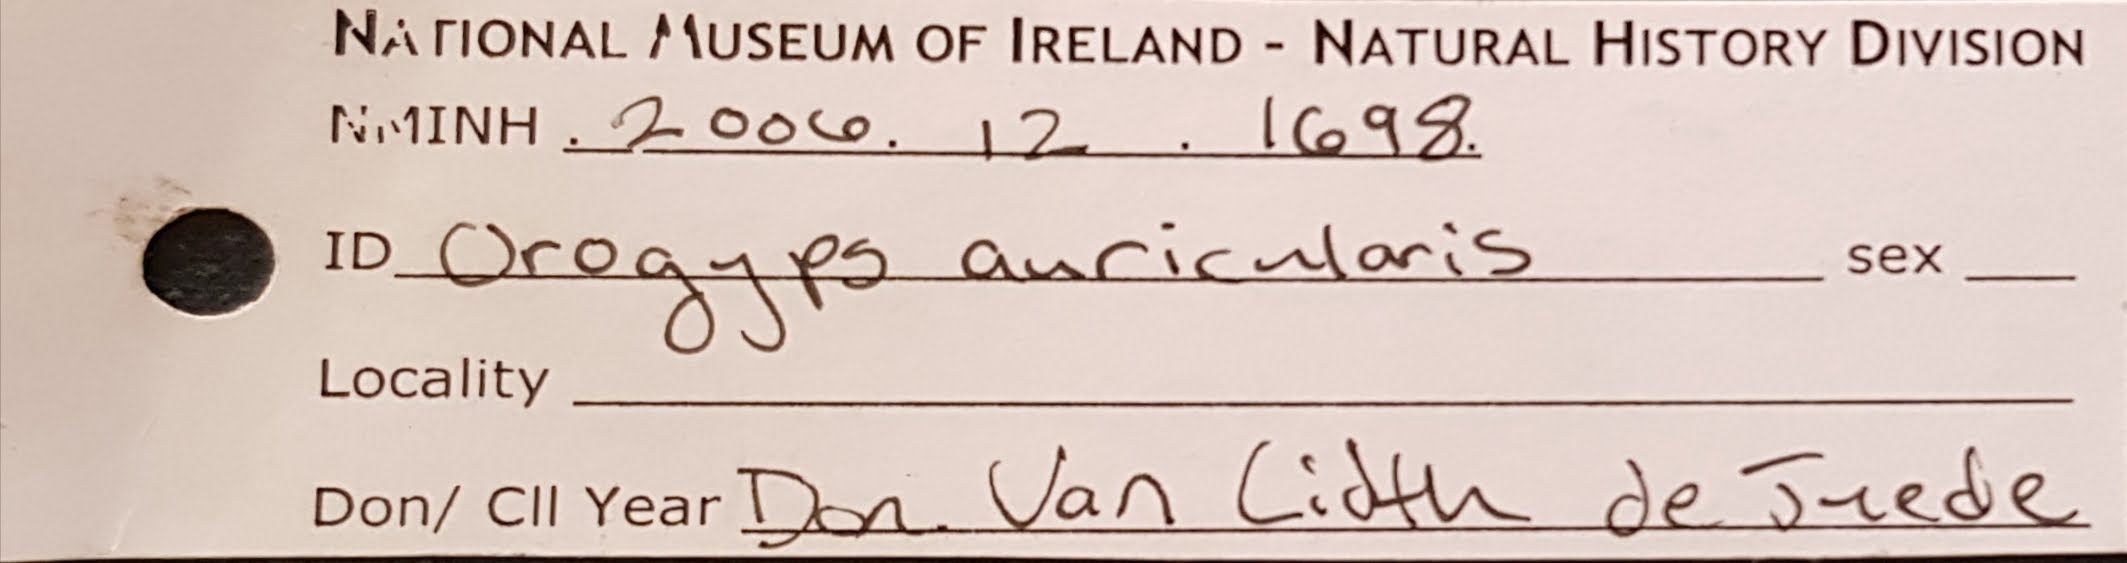 NATIONAL MUSEUM OF IRELAND - NATURAL HISTORY DIVISION
NMINH . 2006. 12 . 1698.
ID Orogyps auricularis sex
Locality
Don/ Cll Year Don. Van Lidth de Juede